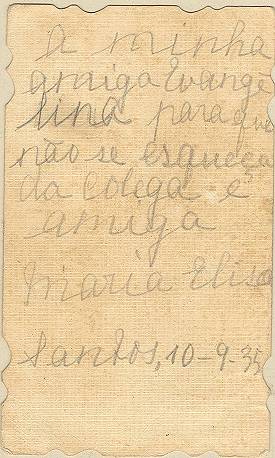 A minha
amiga Evangê
lina para que
não se esqueça
da Colega e
amiga
Maria Elisa
Santos, 10-9-35